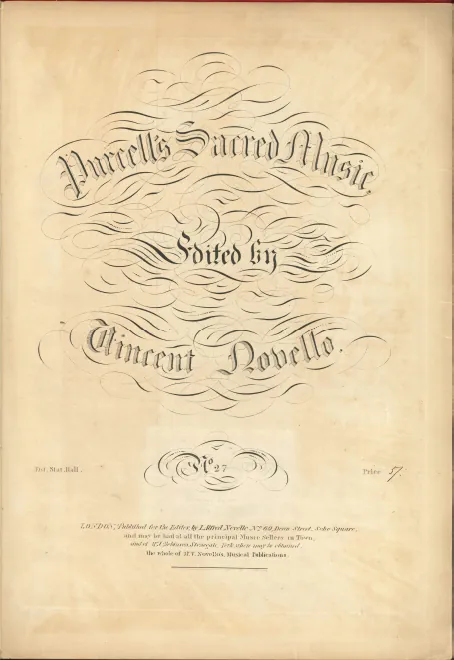 Purcell's Sacred Music,
Edited by
Vincent Novello.
No. 27
Ent. Stat. Hall.
Price 5/.
LONDON, Published for the Editor, by J. Alfred Novello, No. 69, Dean Street, Soho Square,
and may be had of all the principal Music Sellers in Town,
and of Stonegate, York, where may be obtained
the whole of Mr. V. Novello's, Musical Publications.